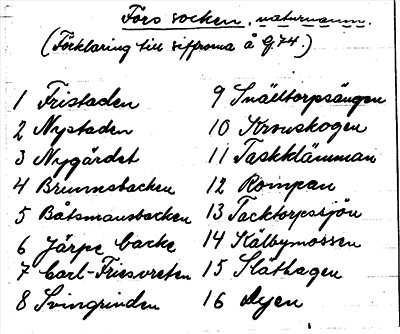 Fors socken, naturnamn.
(Förklaring till siffrorna å G.74.)
1 Fristaden
2 Nystaden
3 Nygärdet
4 Brunnsbacken
5 Båtsmansbacken
6 Järpe backe
7 Carl-Friesvreten
8 Svingrinden
9 Snälltorpsängen
10 Kronskogen
11 Taskklämman
12 Rompan
13 Tacktorpssjön
14 Kälbymossen
15 Släthagen
16 Dyen